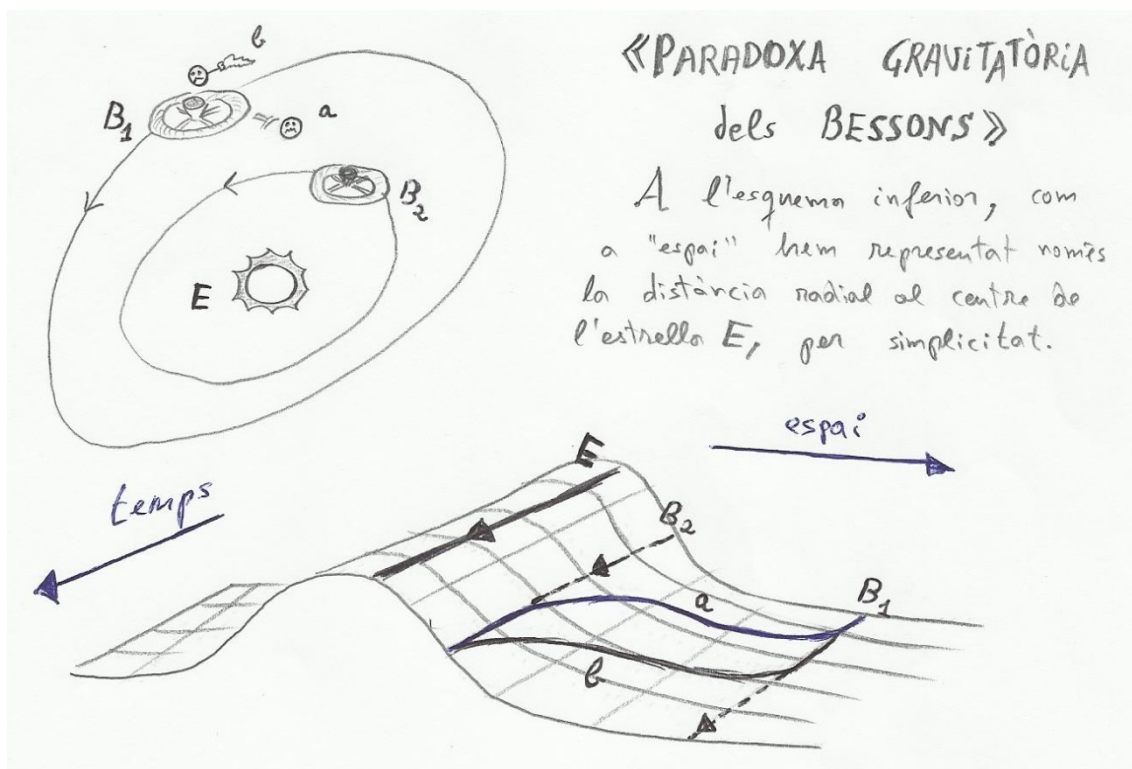 «PARADOXA GRAVITATÒRIA
dels BESSONS»
A l'esquema inferior, com
a "espai" hem representat només
la distància radial al centre de
l'estrella E, per simplicitat.
b
B1
a
B2
E
espai
temps
E
B2
B1
a
b